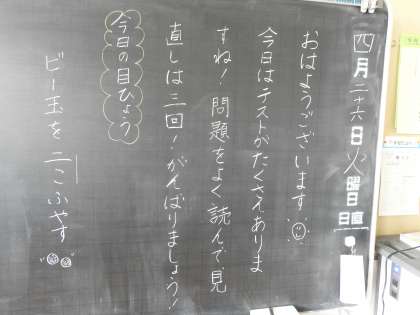 四月二十六日火曜日
日直
おはようございます
今日はテストがたくさんありま
すね！問題をよく読んで、見
直しは三回！がんばりましょう！
今日の目ひょう
ビー玉を二こふやす